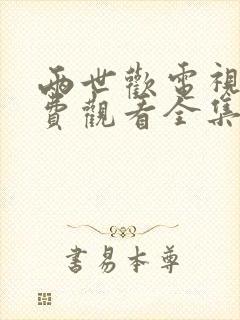 兩世歡電視
費觀看全集
書易本尊